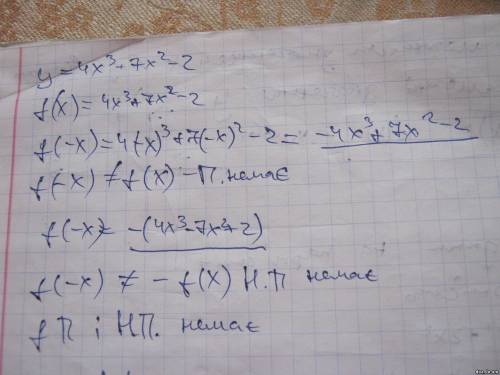 y = 4x³ + 7x² - 2
f(x) = 4x³ + 7x² - 2
f(-x) = 4(-x)³ + 7(-x)² - 2 = -4x³ + 7x² - 2
f(-x) ≠ f(x) - П. немає
f(-x) = -(4x³ - 7x² + 2)
f(-x) ≠ - f(x) Н.П немає
f П і НП. немає